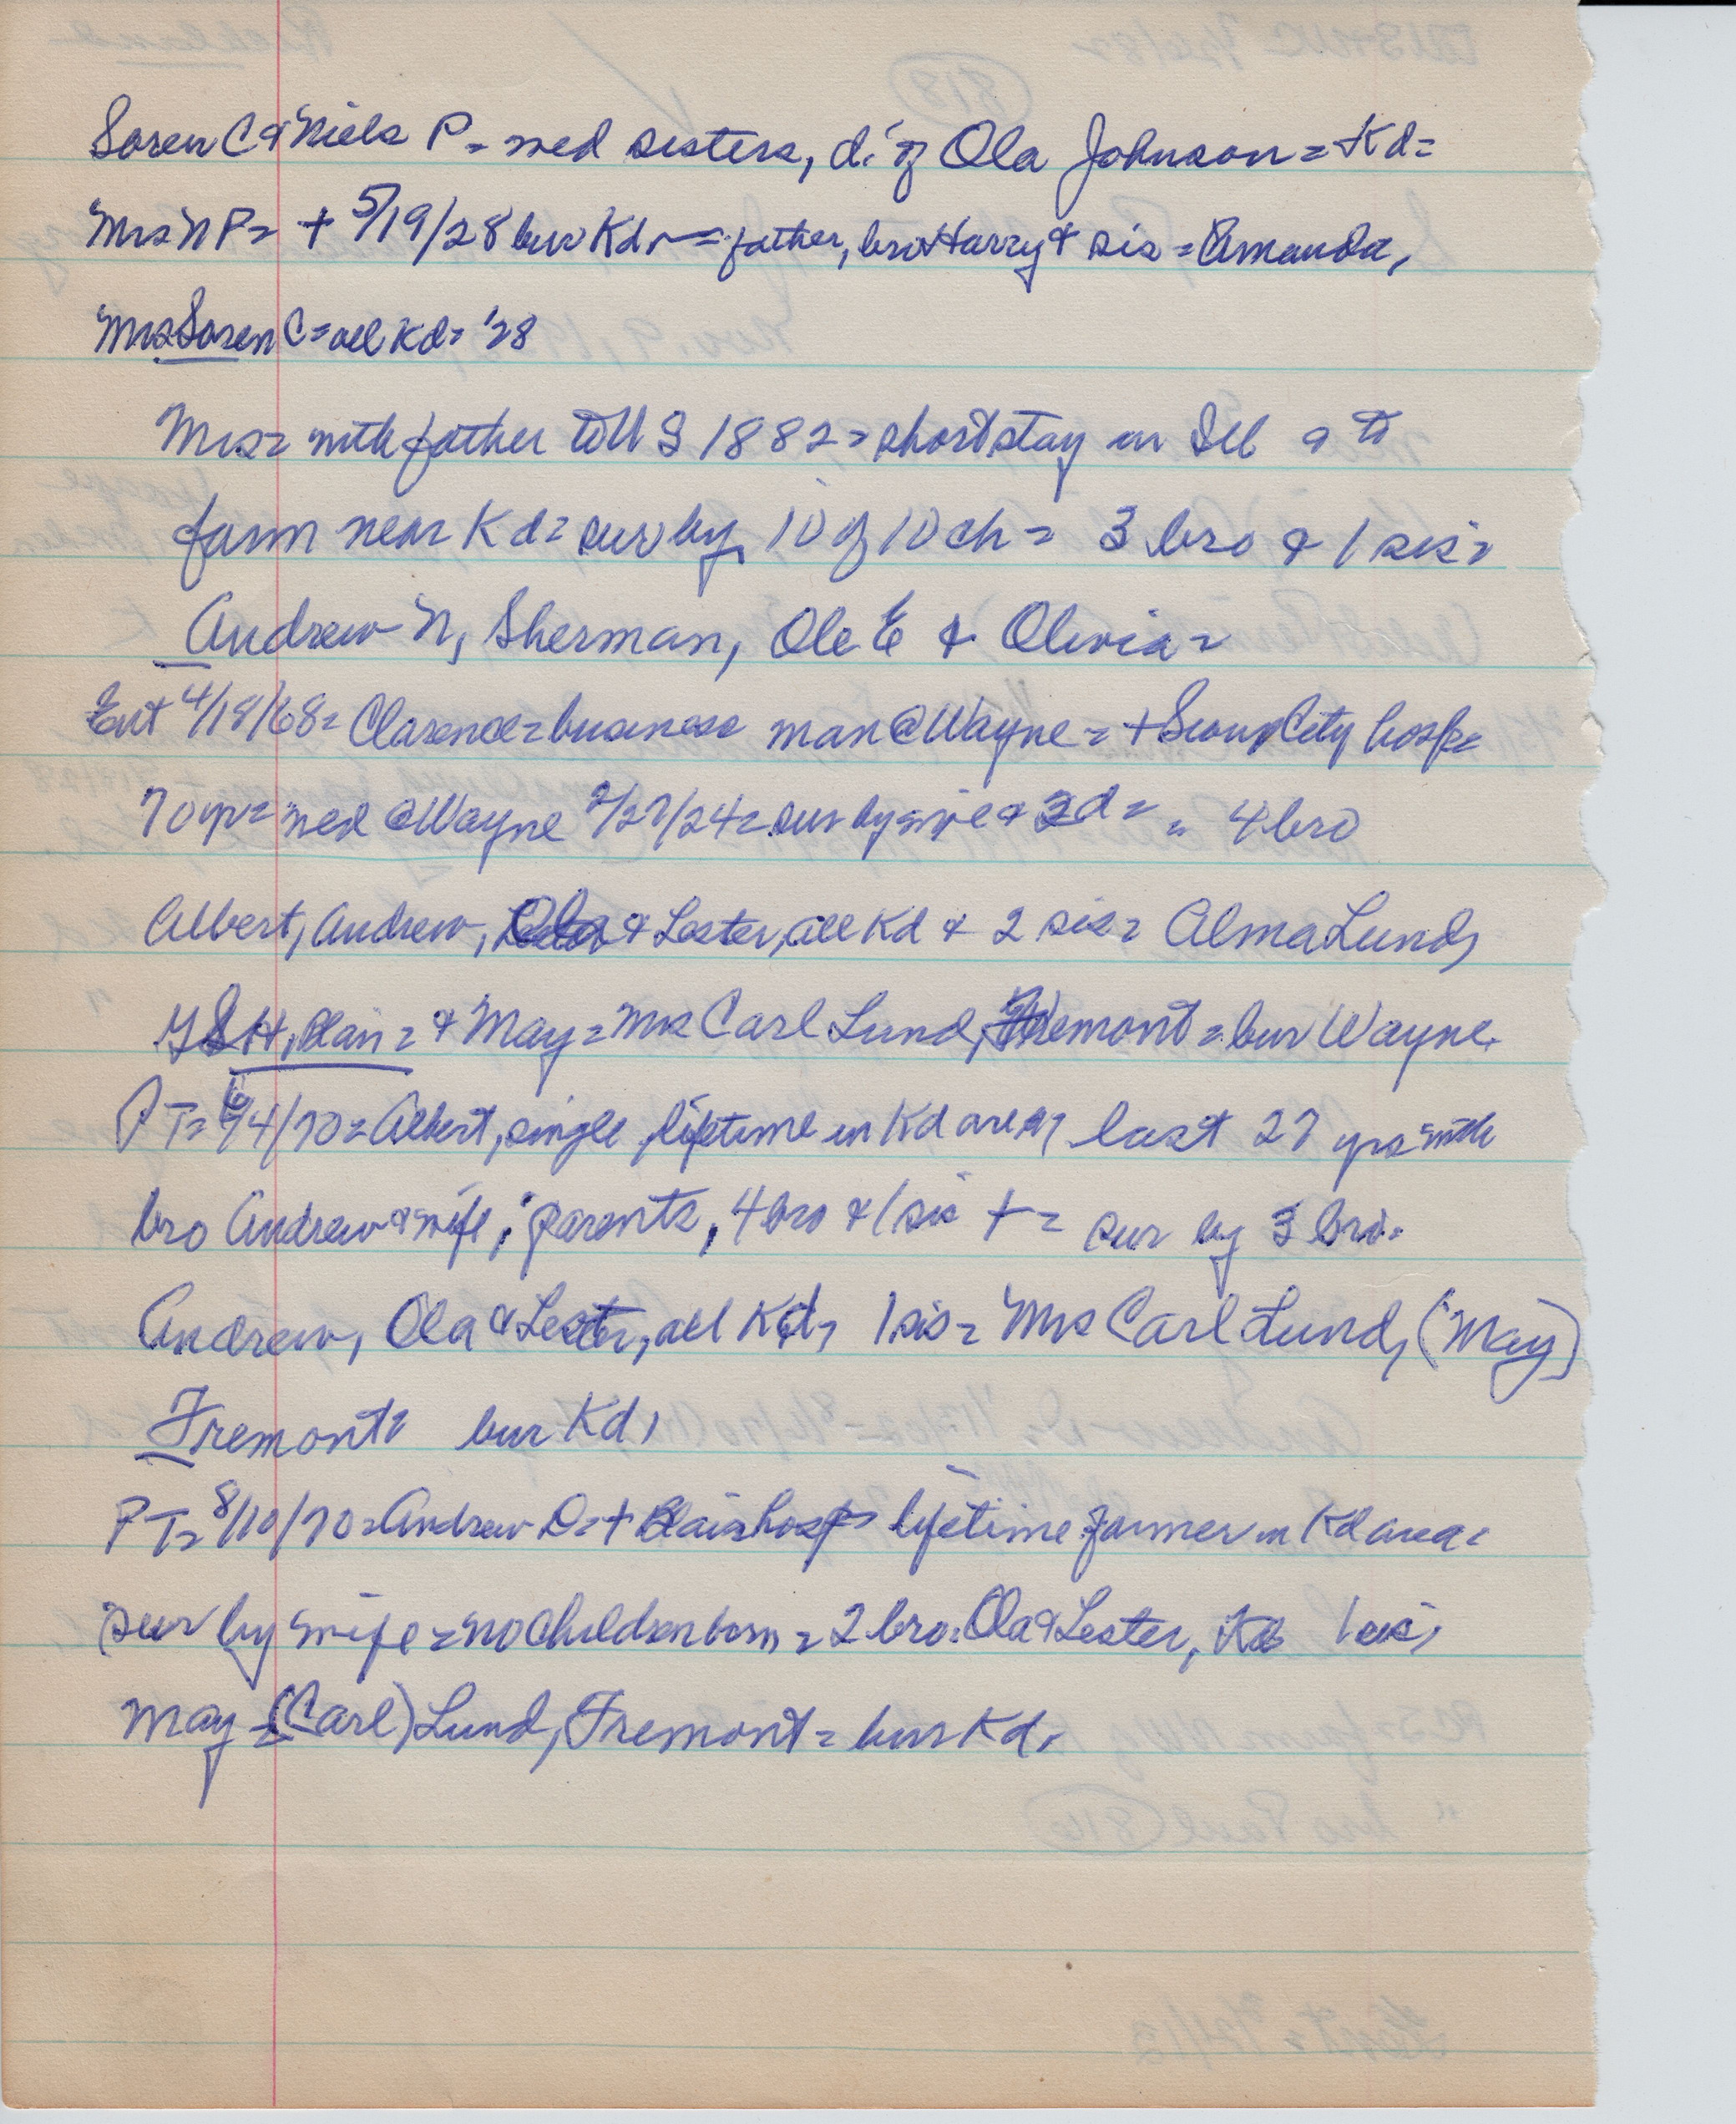 Soren C & Niels P = wed sisters, d. of Ola Johnson = Kd =
Mrs N P = + 5/19/28 bur Kd, = father, bro Harry & sis = Amanda,
Mrs Soren C = all Kd = '28
Mrs = with father to U S 1882 = short stay in Ill & to
farm near Kd = sur by 10 of 10 ch = 3 bro & 1 sis =
Andrew N, Sherman, Ole E & Olivia =
Ent 4/18/68 = Clarence = business man @ Wayne = + Sioux City hosp =
70 yr = wed @ Wayne 2/27/24 = sur by wife & 3 d = = 4 bro
Albert, Andrew, Ola & Lester, all Kd & 2 sis = Alma Lund,
Blair = & May = Mrs Carl Lund, Fremont = bur Wayne.
P T = 6/4/70 = Albert, single, lifetime in Kd area, last 27 yrs with
bro Andrew & wife; parents, 4 bro & 1 sis + = sur by 3 bro.
Andrew, Ola & Lester, all Kd, 1 sis = Mrs Carl Lund, (May)
Fremont = bur Kd,
P T = 8/10/70 = Andrew D = + Blair hosp = lifetime farmer in Kd area =
sur by wife = no children born = 2 bro: Ola & Lester, Kd 1 sis,
May = (Carl) Lund, Fremont = bur Kd.